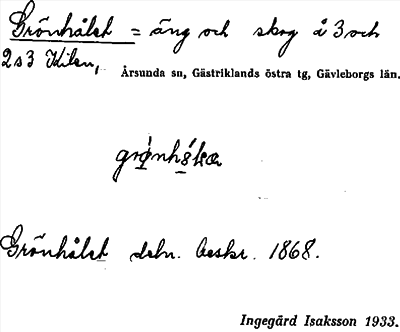 Grönhålet = äng och skog å 3 och
2s3 Kilen,
Årsunda sn, Gästriklands östra tg, Gävleborgs län.
Grönhålet deln. beskr. 1868.
Ingegärd Isaksson 1933.